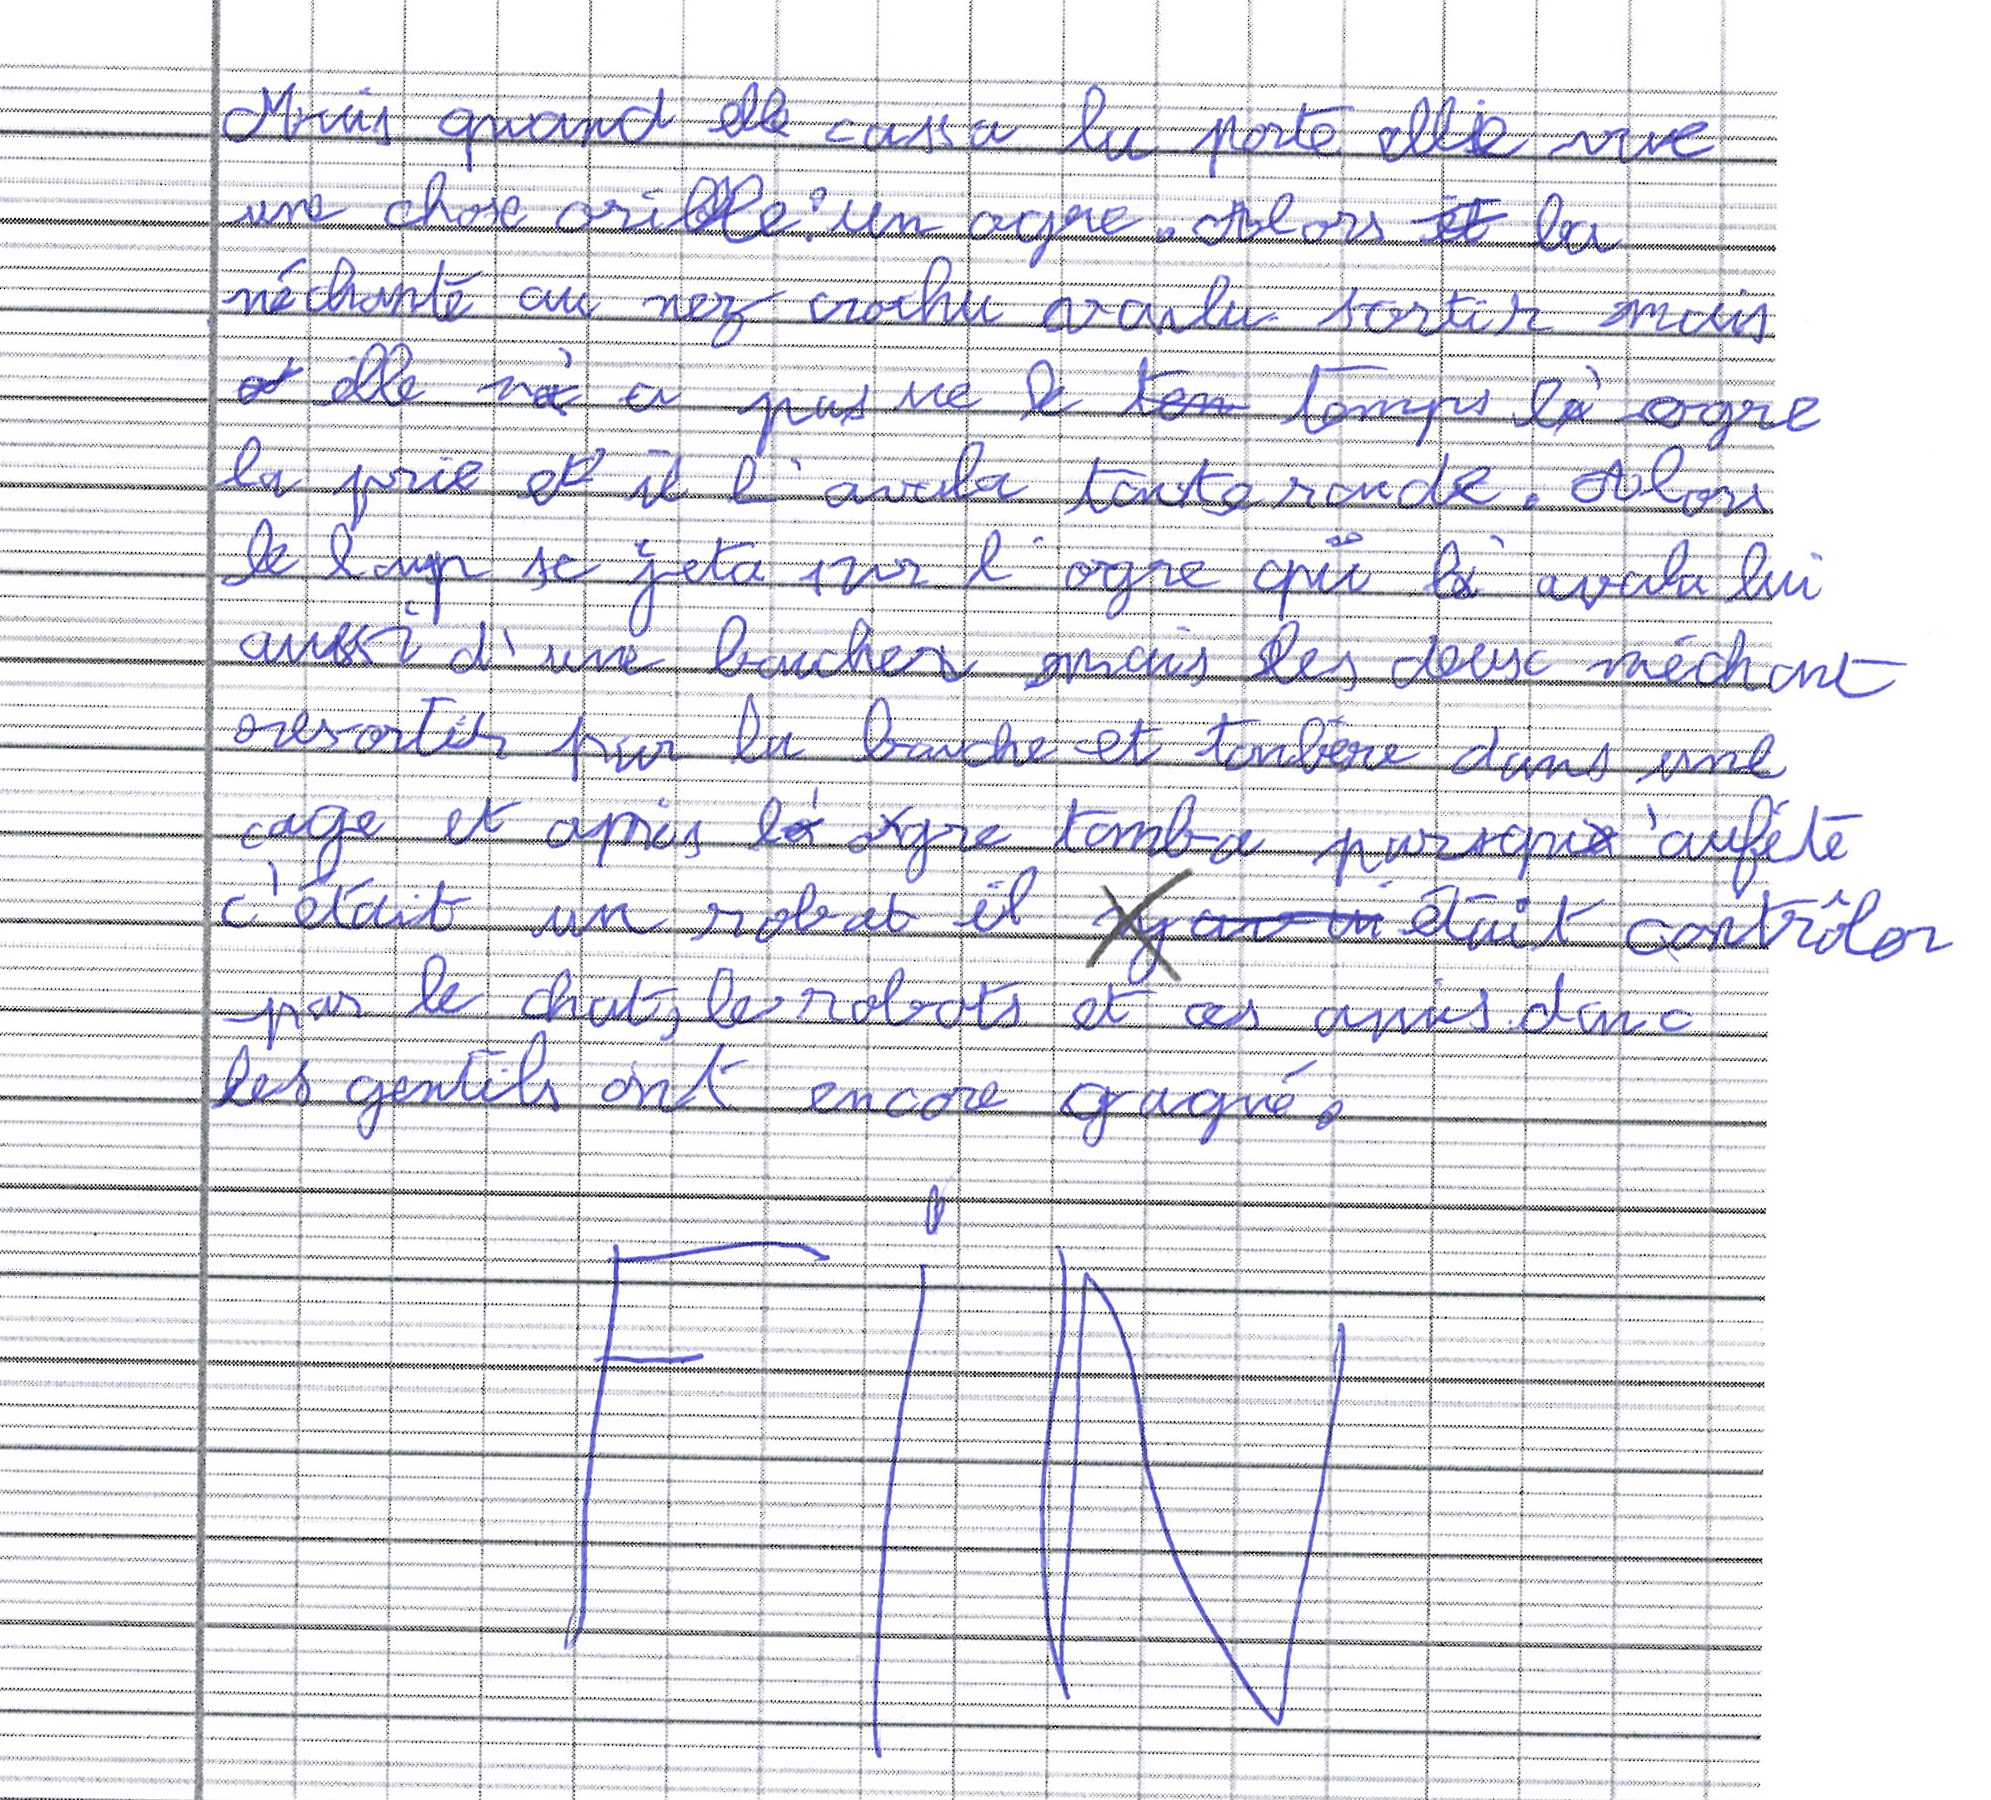 Mais quand elle cassa la porte elle vue
une chose orible : un ogre. Alors la
méchante au nez crochu voulu sortir mais
elle n'a pas ue le temps l'ogre
la prie et il l'avala toute ronde. Alors
le loup se jeta sur l'ogre qui l'avala lui
aussi d'une boucher mais les deux méchant
resortir par la bouche et tombère dans une
cage et après l'ogre tomba parsqu'aufète
c'était un robot il était contrôler
par le chat, le robots et ces amis donc
les gentils ont encore gagné.
FIN